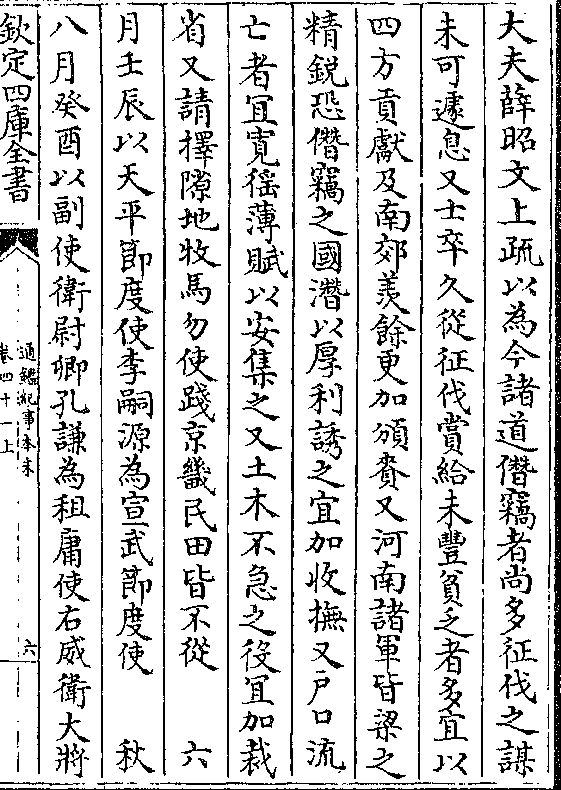 大夫薛昭文上疏以為今諸道僭竊者尚多征伐之謀
未可遽息又士卒久從征伐賞給未豐貧乏者多宜以
四方貢獻及南郊羨餘更加頒賚又河南諸軍皆梁之
精鋭恐僭竊之國潛以厚利誘之宜加收撫又戶口流
亡者宜寛徭薄賦以安集之又土木不急之役宜加裁
省又請擇隙地牧馬勿使踐京畿民田皆不從　六
月壬辰以天平節度使李嗣源為宣武節度使　秋
八月癸酉以副使衛尉卿孔謙為租庸使右威衛大將
欽定四庫全書
通鑑紀事本末
卷四十一上
六